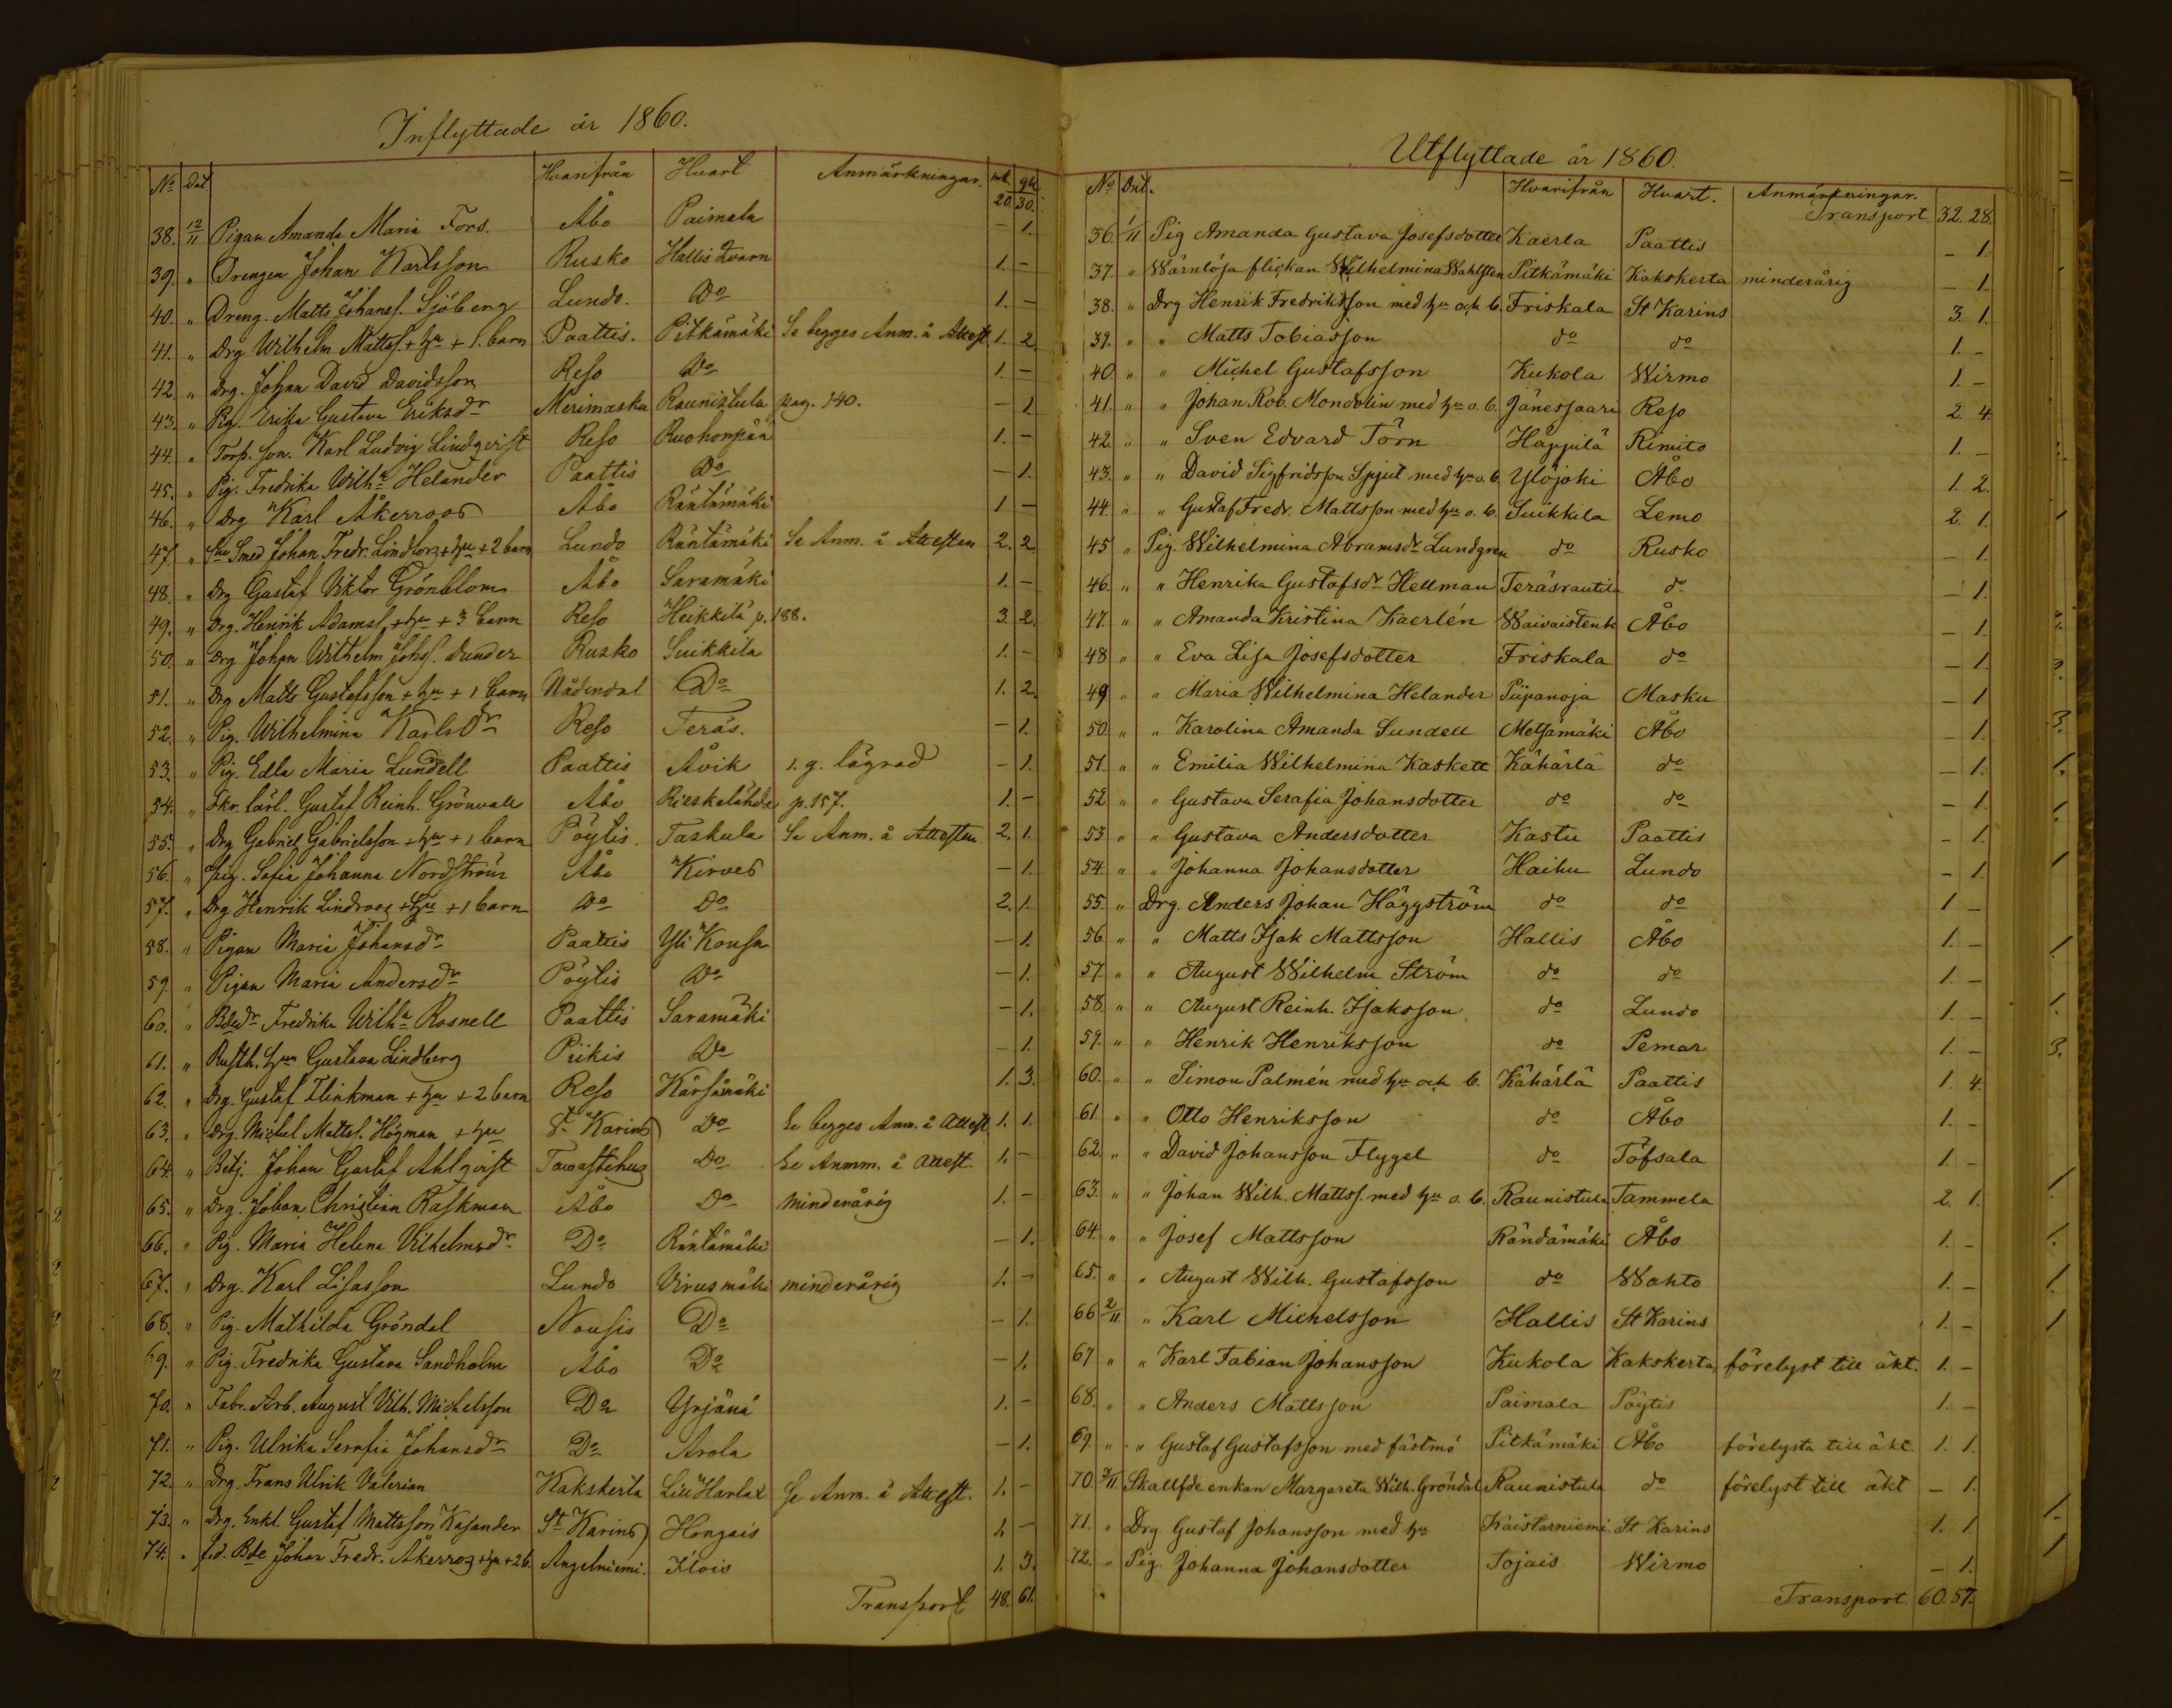 Inflyttade år 1860.
No Dat Hvarifrån Hvart Anmärkningar. mk. qk.
20. 30.
38. 12/11 Pigan Amanda Maria Fors. Åbo Paimala - 1.
39. " Drengen Johan Karlsson Rusko Hallis Qvarn 1. -
40. " Dreng. Matts Johanss. Sjöberg Lundo. Do 1. -
41. " Drg Wilhelm Mattss. + hu + 1. barn Paattis. Pitkämäki Se begges Anm. å Attest 1. 2.
42 " Drg. Johan David Davidsson Reso Do 1. -
43. " Pig. Erika Gustava Eriksdr Merimasku Raunistula pag. 140. - 1
44. " Torp. son. Karl Ludvig Lindqvist Reso Ruohonpää 1. -
45. " Pig. Fredrika Wilha Helander Paattis Do - 1.
46. " Drg Karl Åkerroos Åbo Räntämäki 1 -
47. " Sn Smed Johan Fredr. Lindfors + hu + 2 barn Lundo Räntämäki Se Anm. å Attesten 2. 2
48. " Drg Gustaf Viktor Grönblom Åbo Saramäki 1. -
49. " Drg. Henrik Adamss. + hu + 3 barn Reso Heikkilä p. 188. 3. 2.
50. " Drg Johan Wilhelm Johss. Dunder Rusko Suikkila 1. -
51. " Drg Matts Gustafsson + hu + 1 barn Nådendal Do 1. 2.
52. " Pig. Wilhelmina Karlsdr Reso Teräs. - 1.
53. " Pig. Edla Maria Lundell Paattis Åvik 1. g. lägrad - 1.
54. " Skr. lärl. Gustaf Reinh. Grönvall Åbo Rieskalähde p. 157. 1. -
55. " Drg Gabriel Gabrielsson + hu + 1 barn Pöytis. Taskula Se Anm. å Attesten 2. 1.
56. " Pig. Sofia Johanna Nordström Åbo Kirves - 1.
57. " Drg Henrik Lindroos + hu + 1 barn Do Do 2. 1.
58. " Pigan Maria Johansdr Paattis Yli Kousa - 1.
59. " Pigan Maria Andersdr Pöytis Do - 1.
60. " Bdedr Fredrika Wilha Rosnell Paattis Saramäki - 1.
61. " Rusth. hu Gustava Lindberg Piikis Do - 1.
62. " Drg. Gustaf Flinkman + hu + 2 barn Reso Kärsämäki 1. 3.
63. " Drg. Michel Mattss. Högman + hu St Karins Do Se begges Anm. å Attest 1. 1.
64. " Betj. Johan Gustaf Ahlqvist Tawastehus Do Se Anmm. å Attest. 1. -
65. " Drg. Johan Christian Raskman Åbo Do Minderårig 1. -
66. " Pig. Maria Helena Vilhelmsdr Do Räntämäki - 1.
67. " Drg. Karl Lisasson Lundo Virusmäki minderårig 1. -
68. " Pig. Mathilda Gröndal Nousis Do - 1.
69. " Pig. Fredrika Gustava Sandholm Åbo Do - 1.
70. " Fabr. Arb. August Vilh. Michelsson Do Yrjänä 1. -
71. " Pig. Ulrika Serafia Johansdr Do Arola - 1.
72. " Drg. Frans Ulrik Valerian Kakskerta Lill Harlax Se Anm. å Attest. 1. -
73. " Drg. Enkl. Gustaf Mattsson Kasander St Karins Hongais 1. -
74. " f.d. Bde Johan Fredr. Åkerros + hu + 2 b. Angelniemi. Ilois 1. 3.
Transport 48. 61.
Utflyttade år 1860.
No Dat. Hvarifrån Hvart. Anmärkningar.
Transport 32. 28.
36. 1/11 Pig Amanda Gustava Josefsdotter Kaerla Paattis - 1.
37. " Wärnlösa flickan Wilhelmina Wahlsten Pitkämäki Kakskerta minderårig - 1
38. " Drg Henrik Fredriksson med hu och b. Friskala St Karins 3. 1.
39. " " Matts Tobiasson do do 1. -
40. " " Michel Gustafsson Kukola Wirmo 1. -
41. " " Johan Rob. Mondolin med hu o. b. Jänessaari Reso 2. 4.
42. " " Sven Edvard Törn Häppilä Rimito 1. -
43. " " David Sigfridsson Spjut med hu o. b. Ylöjoki Åbo 1. 2.
44. " " Gustaf Fredr. Mattsson med hu o. b. Suikkila Lemo 2. 1.
45 " Pig. Wilhelmina Abramsdr Lundgren do Rusko - 1.
46. " " Henrika Gustafsdr Hellman Teräsrautila do - 1.
47. " " Amanda Kristina Kaerlén Waivaistenk Åbo - 1.
48 " " Eva Lisa Josefsdotter Friskala do - 1.
49 " " Maria Wilhelmina Helander Piipanoja Masku - 1
50. " " Karolina Amanda Sundell Metsämäki Åbo - 1.
51. " " Emilia Wilhelmina Kaskett Kähärlä do - 1.
52 " " Gustava Serafia Johansdotter do do - 1.
53 " " Gustava Andersdotter Kastu Paattis - 1.
54. " " Johanna Johansdotter Haihu Lundo - 1.
55. " Drg. Anders Johan Häggström do do 1 -
56. " " Matts Isak Mattsson Hallis Åbo 1. -
57. " " August Wilhelm Ström do do 1. -
58. " " August Reinh. Isaksson do Lundo 1. -
59. " " Henrik Henriksson do Pemar 1. -
60. " " Simon Palmén med hu och b. Kähärlä Paattis 1. 4.
61. " " Otto Henriksson do Åbo 1. -
62. " " David Johansson Flygel do Töfsala 1. -
63. " " Johan Wilh. Mattss. med hu o. b. Raunistula Tammela 2. 1.
64. " " Josef Mattsson Rändämäki Åbo 1. -
65. " " August Wilh. Gustafsson do Wahto 1. -
66 2/11 " Karl Michelsson Hallis St Karins 1. -
67 " " Karl Fabian Johansson Kukola Kakskerta, förelyst till äkt. 1. -
68. " " Anders Mattsson Paimala Pöytis 1. -
69. " " Gustaf Gustafsson med fästmö Pitkämäki Åbo förelysta till äkt. 1. 1.
70. 3/11 Skallfde enkan Margareta Wilh. Gröndal Raunistula do förelyst till äkt - 1.
71. " Drg Gustaf Johansson med hu Kaistarniemi St Karins 1. 1
72. " Pig. Johanna Johansdotter Tojais Wirmo - 1.
Transport 60. 57.